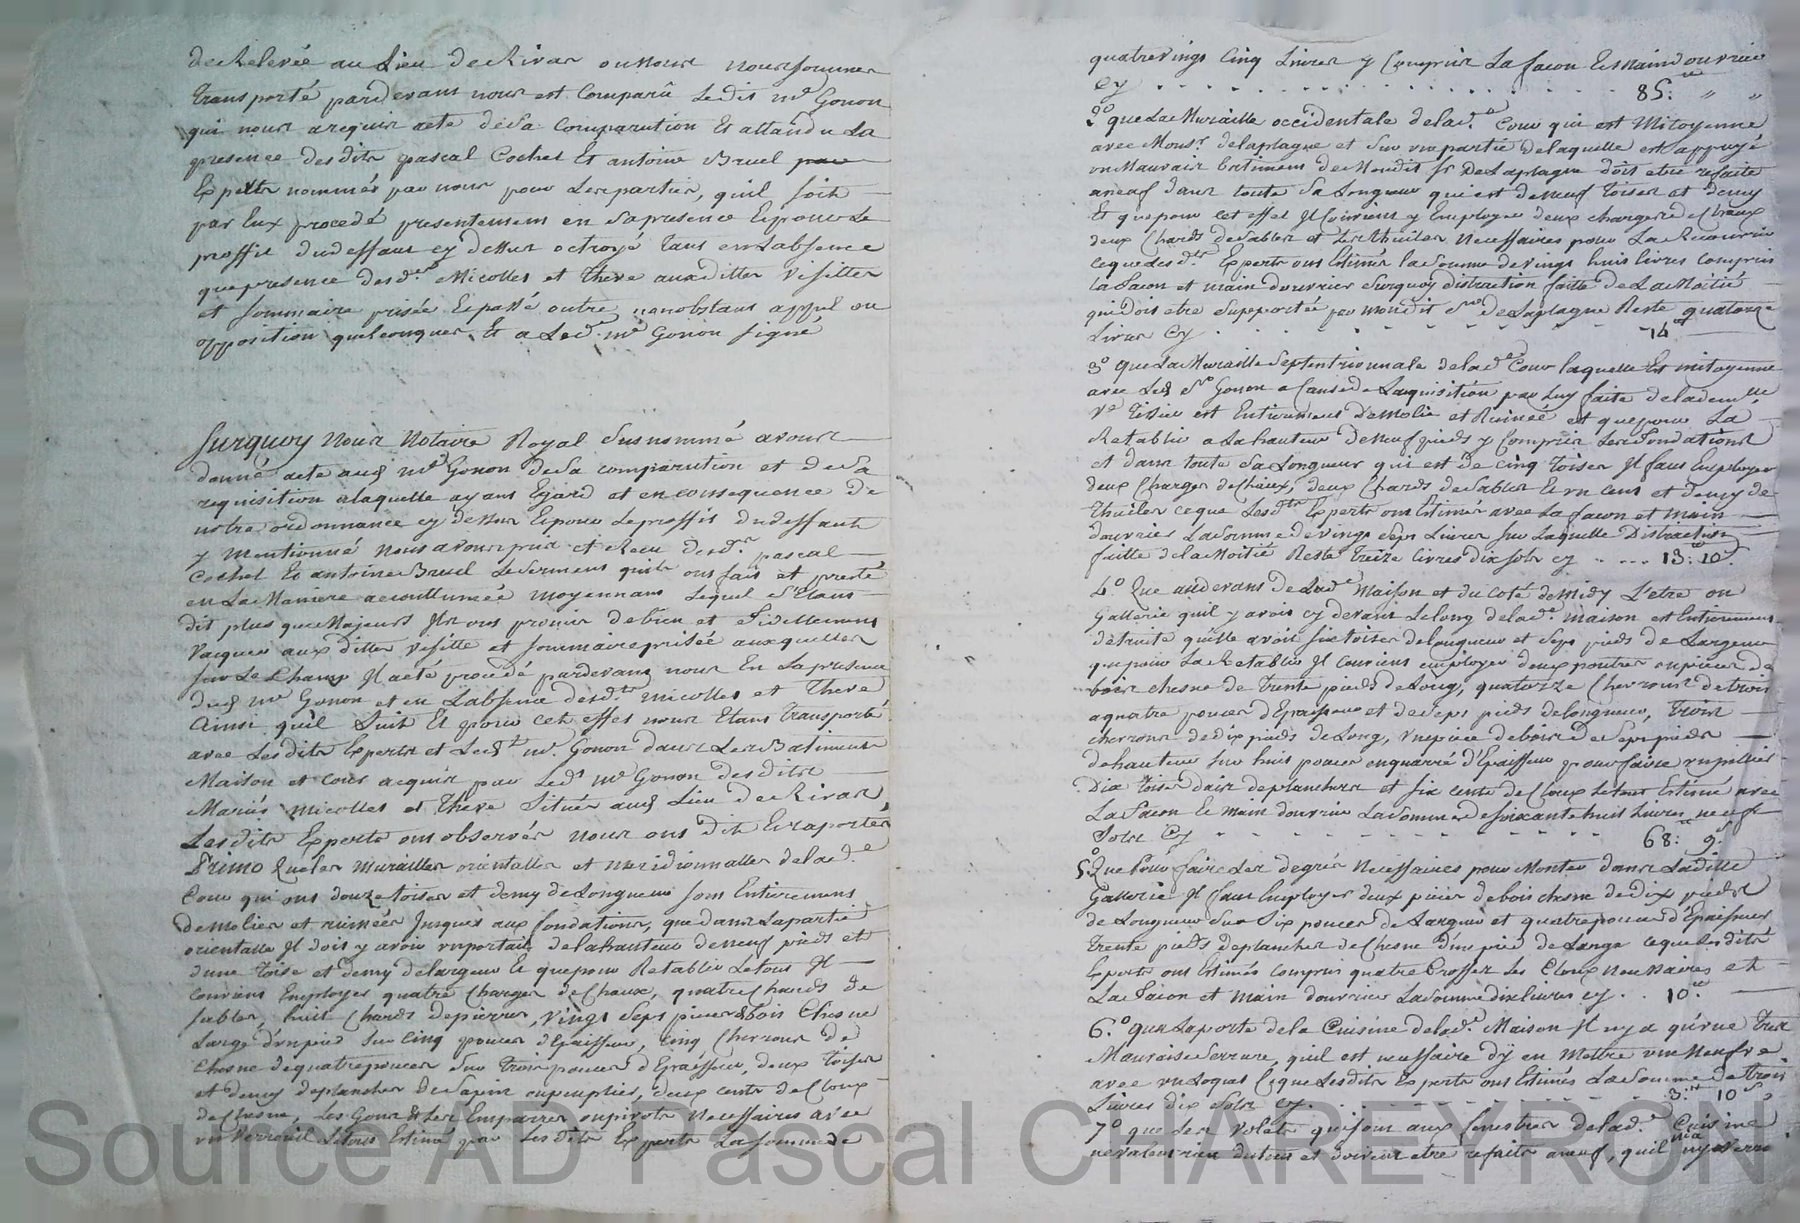 de Relevée au Lieu de Rivas ou nous nous sommes
transporté pardevant nous est Comparû Ledit mᵉ Gonon
qui nous a requis acte de sa Comparution Et attandu La
presence desdits pascal Cochet Et antoine Bruel
Experts nommés par nous pour Les parties, qu'il soit
par Eux procedé presentement en sa presence Et pour Le
proffit du deffaut cy dessus octroyé tant en L'absence
que presence desd.ᵗˢ Micolles et Theve aux dittes visittes
et sommaire prisée Et passé outre nonobstant appel ou
opposition quelconques Et a Led. mᵉ Gonon signé
Surquoy Nous Notaire Royal susnommé avons
donné acte aud mᵉ Gonon de sa comparution et de sa
requisition a laquelle ayant Egard et en consequence de
notre ordonnance cy dessus Et pour Le proffit du deffaut
y mentionné nous avons pris et Recu desd.ᵗˢ pascal
Cochet Et antoine Bruel Le serment qu'ils ont fait et presté
en La Maniere accouttumée moyennant Lequel s'Etant
dit plus que Majeurs Ils ont promis de bien et Fidellement
vacquer aux dittes visitte et sommaire prisée auxquelles
sur Le Champ Il a eté procédé pardevant nous En La presence
dud mᵉ Gonon et en L'absence desd.ᵗˢ Micolles et Theve
Ainsi qu'il Suit Et pour cet effet nous Etant transporté
avec Lesdits Experts et Led.ᵗ mᵉ. Gonon dans Les Batiments
Maison et Cour acquis par Led.ᵗ mᵉ Gonon desdits
Mariés Micolles et Theve Situés aud Lieu de Rivas,
Lesdits Experts ont observés nous ont dit Et raporter
Primo Que les murailles orientalles et meridionnalles de lad.ᵉ
Cour qui ont douze toises et demy de Longueur sont Entierement
demolies et ruinées Jusques aux fondations, que dans La partie
orientalle Il doit y avoir un portail de la hauteur de neuf pieds et
d'une toise et demy de largeur Et que pour Retablir Le tout Il
convient Employer quatre Charges de Chaux, quatre Chards de
sables, huit Chards de pierres, vingt sept pieces de Bois Chesne
Large d'un pied sur Cinq pouces d'Epaisseur, cinq Cherrons de
Chesne de quatre pouces sur trois pouces d'Epaisseur, deux toises
et demy de plancher de Sapin ou peuplier, deux cents de Cloux
de Chesne, Les Gonds et Les Emparres ou pivots necessaires avec
un Verrouil Le tout Estimé par Lesdits Experts La somme de
quatrevingt Cinq Livres y Compris La facon Et main d'ouvrier
Cy 85:ᵗᵗ " "
2.° que La Muraille occidentale de lad.ᵉ Cour qui est Mitoyenne
avec Mons.ʳ delaplagne et sur une partie de laquelle est appuyé
un Mauvais batiment de Mondit Sr De Laplagne doit etre refaite
a neuf dans toute sa Longueur qui est de neuf toises et demy
Et que pour cet effet Il convient y Employer deux charges de Chaux
deux Chards de Sables et Les thuiles necessaires pour La Recouvrir
ce que lesd.ᵗˢ Experts ont Estimer La somme de vingt huit livres compris
La Facon et main d'ouvrier Surquoy distraction faitte de La Moitié
qui doit etre supportée par Mondit Sʳ de Laplagne Reste quatorze
Livres Cy 14ᵗᵗ
3.° que La Muraille Septentrionnale de lad.ᵉ Cour laquelle Est mitoyenne
avec Led sʳ Gonon a Cause de L'acquisition par Luy faite de lademˡˡᵉ
Vᵉ Tissier est Entierement Demolie et Ruinée et que pour La
Retablir a La hauteur de neuf pieds y Compris Les Fondations
et dans toute sa Longueur qui est de cinq toises Il faut Employer
deux Charges de Chaux, deux Chards de Sables Et un cent et demy de
thuiles ce que Lesd.ᵗˢ Experts ont Estimer avec La facon et main
d'ouvrier La somme de vingt sept Livres sur Laquelle Distraction
faitte de la Moitié Reste treize livres dix sols cy 13:ᵗᵗ 10.ˢ
4.° Que audevant de Lad.ᵉ Maison et du coté de Midy L'etre ou
Gallerie qu'il y avoit cy devant Le long de lad.ᵉ maison est Entierement
détruite qu'elle avoit six toises de longueur et sept pieds de Largeur
que pour La Retablir Il convient employer deux poutres ou pieces de
bois chesne de trente pieds de Long, quatorze Cherrons de trois
a quatre pouces d'Epaisseur et de sept pieds de longueur, trois
cherrons de dix pieds de Long, une piece de bois de sept pieds
de hauteur sur huit pouces en quarré d'Epaisseur pour faire un pillier
Dix toises d'aix de planchers et six cents de Cloux Le tout Estimé avec
La facon Et main d'ouvrier La somme de soixante huit Livres neuf
Sols Cy 68:ᵗᵗ 9.ˢ
5.° Que Pour faire Les degrés necessaires pour Monter dans Laditte
Gallerie Il faut Employer deux pieces de bois chesne de dix pieds
de Longueur sur Six pouces de Largeur et quatre pouces d'Epaisseur
trente pieds de plancher de Chesne d'un pied de Large ce que Lesdits
Experts ont Estimés compris quatre Crosses Les Cloux necessaires et
La Facon et main d'ouvrier La somme dix livres cy 10:ᵗᵗ
6.° que La porte de la Cuisine de lad.ᵉ Maison Il n'y a qu'une tres
Mauvaise Serrure, qu'il est necessaire d'y en Mettre une Neufve
avec un Loquet Ce que Lesdits Experts ont Estimés La somme de trois
Livres dix Sols cy 3:ᵗᵗ 10ˢ
7.° que Les Volets qui sont aux fenestres de lad.ᵉ Cuisine
ne valent rien du tout et doivent etre refaits a neuf, qu'il n'y a
Source AD Pascal CHAREYRON